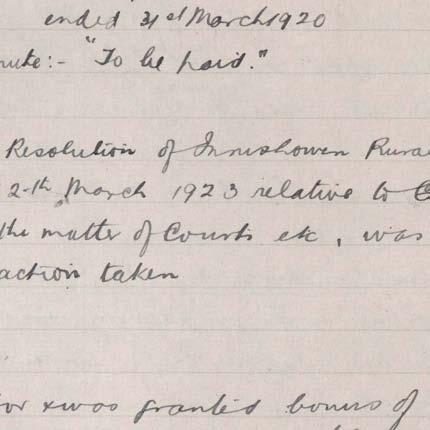 ended 31st March 1920
nute:- "To be paid."
Resolution of Innishowen Rura
2th March 1923 relative to C
the matter of Courts etc, was
action taken
or was granted bonus of